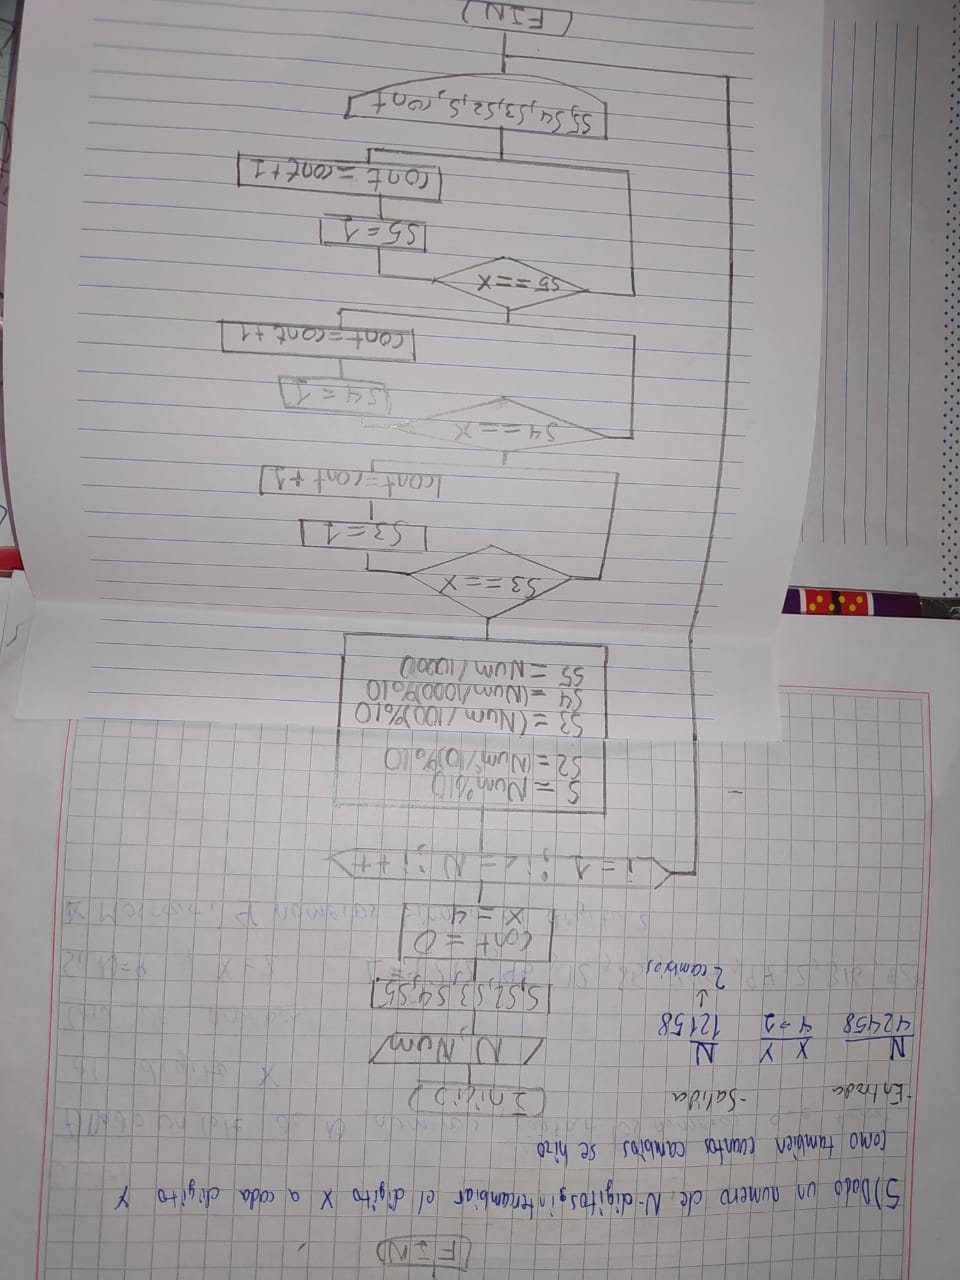 FIN
5) Dado un numero de N-digitos, intercambiar el digito X a cada digito Y
como tambien cuantos cambios se hizo
-Entrada
-Salida
N X Y N
42458 4→1 12158
↓
2 cambios
Inicio
N, Num
S,S2,S3,S4,S5
cont = 0
X = 4
i=1 ; i<=N ; i++
S = Num%10
S2 = (Num/10)%10
S3 = (Num/100)%10
S4 = (Num/1000)%10
S5 = Num/10000
S3 == X
S3 = 1
cont=cont+1
S4 == X
S4 = 1
cont=cont+1
S5 == X
S5 = 1
cont=cont+1
S5,S4,S3,S2,S,cont
FIN